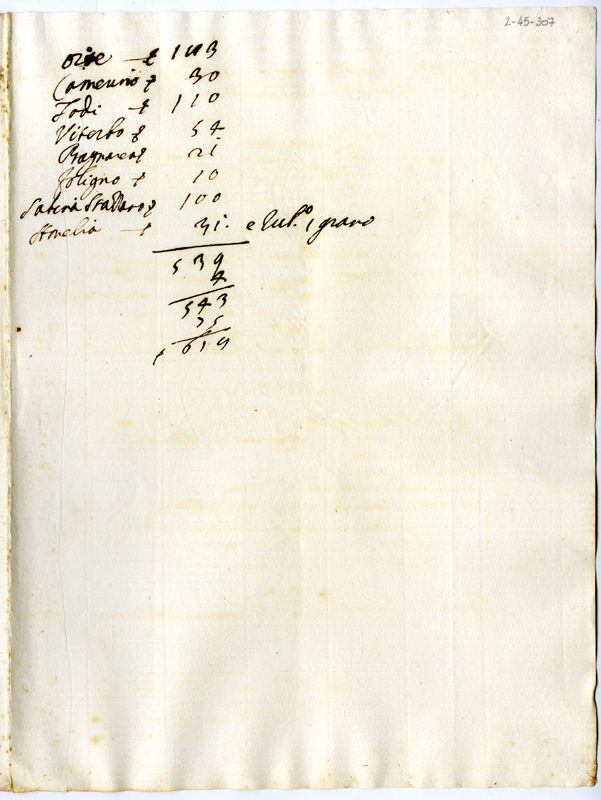 2-45-307
orte — ∇ 183
Camerino ∇ 30
Todi — ∇ 110
Viterbo ∇ 54
Bagnarea ∇ 21
foligno ∇ 10
Sabina ∇ 100
Amelia — ∇ 31. e Rub.º 1 grano
539
4
543
75
∇ 619